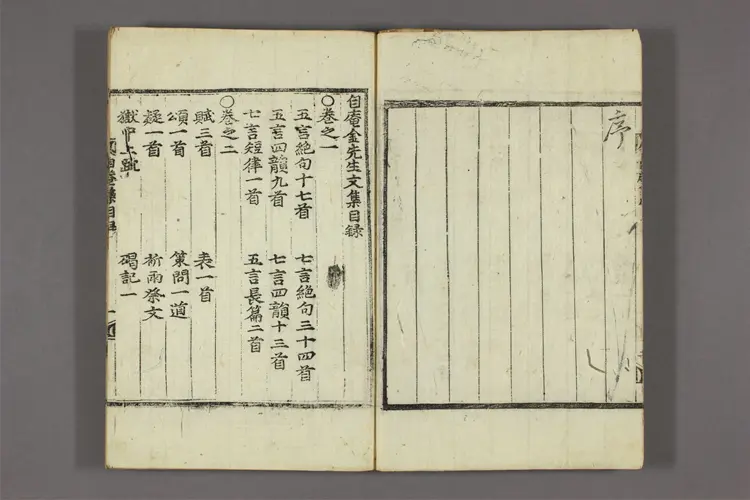 序
自庵金先生文集目録
○卷之一
五言絶句十七首 七言絶句三十四首
五言四韻九首 七言四韻十三首
七言短律一首 五言長篇二首
○卷之二
賦三首 表一首
頌一首 策問一道
疑一首 祈雨祭文
獄中上疏 碣記一